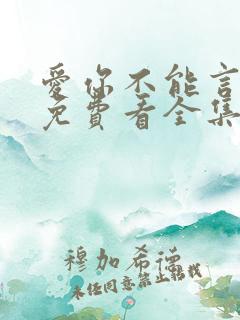 爱你不能言
免费看全集
穆加希德
未经同意禁止转载